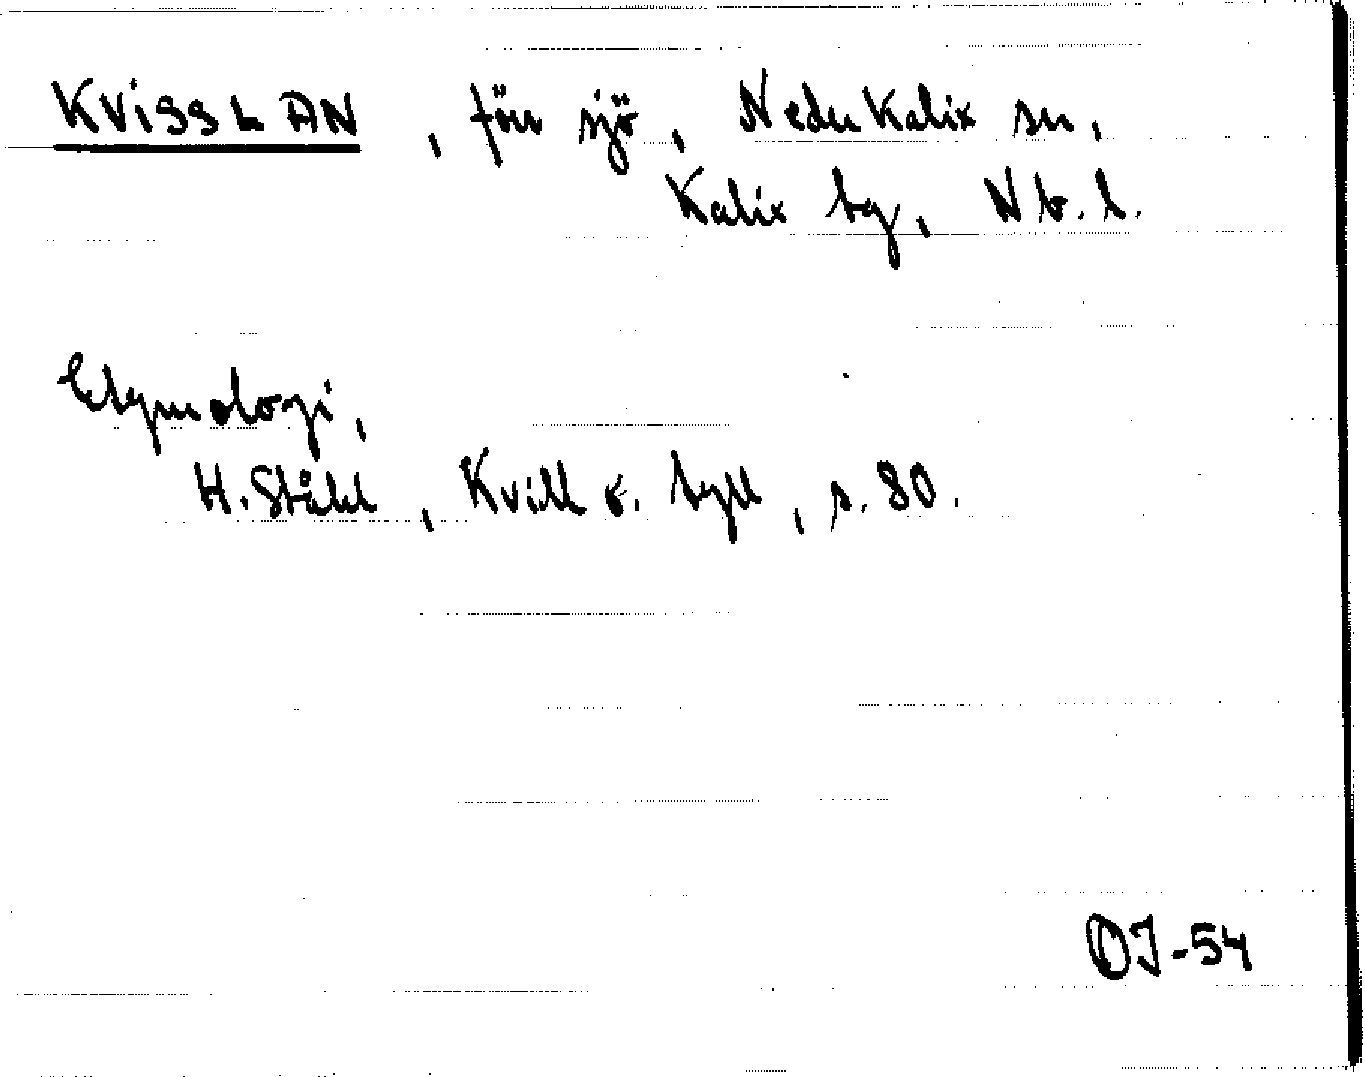 KVISSLAN, förr sjö, NederKalix sn,
Kalix tg, Nb. l.
Etymologi,
H. Ståhl, Kvill o. tyll, s. 80.
OJ-54